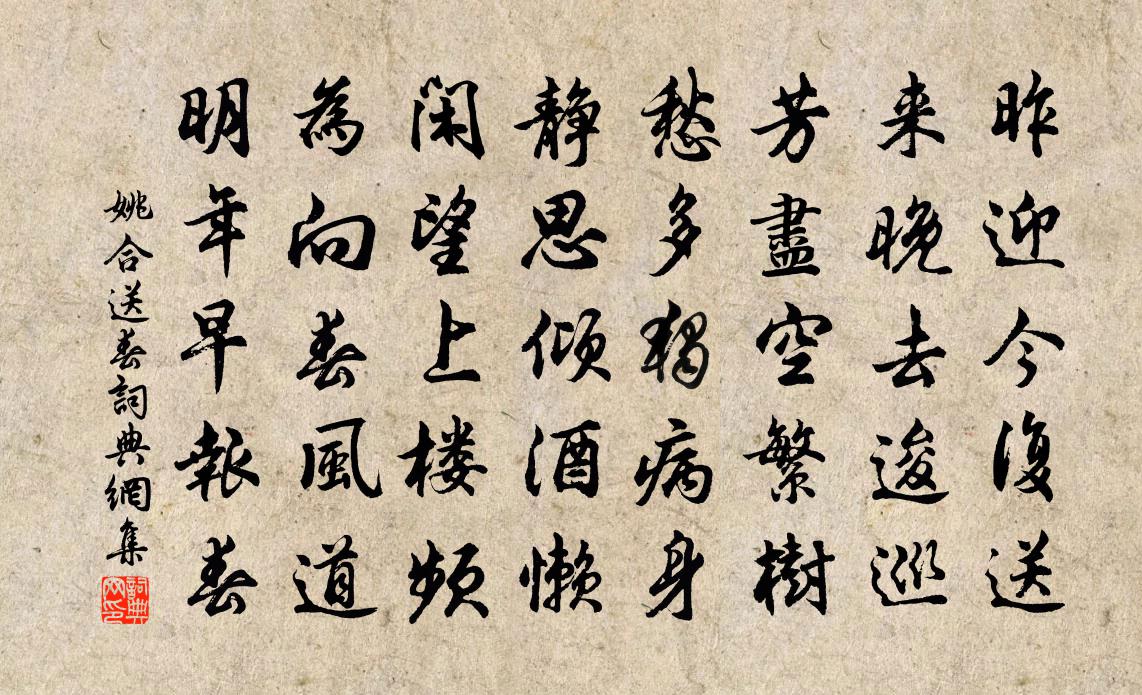 昨迎今復送
来晚去逡巡
芳盡空繁樹
愁多獨病身
静思倾酒懒
闲望上楼频
為向春風道
明年早報春
姚合送春詞典網集
詞典网印